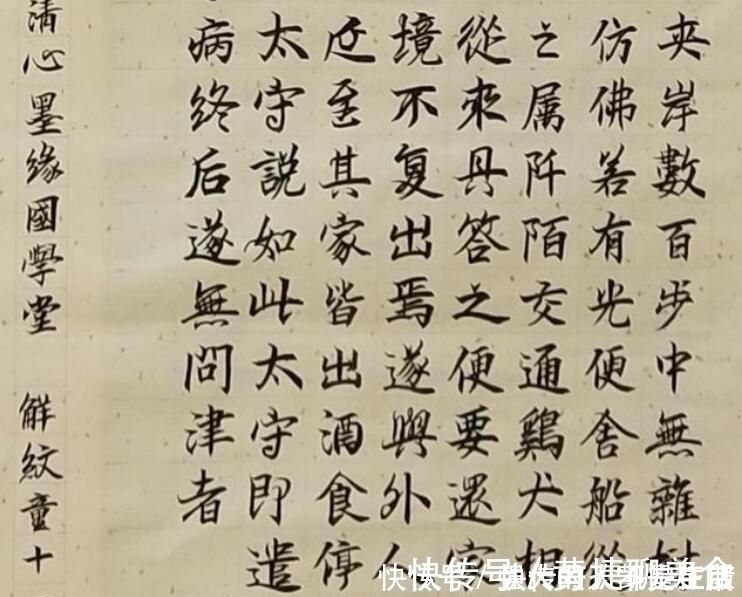 夹岸數百步中無雜
仿佛若有光便舍船從
之属阡陌交通鷄犬相
從來具答之便要還家
境不复出焉遂與外人
延至其家皆出酒食停
太守説如此太守即遣
病終后遂無問津者
清心墨缘國學堂 解紋童十
快传号/